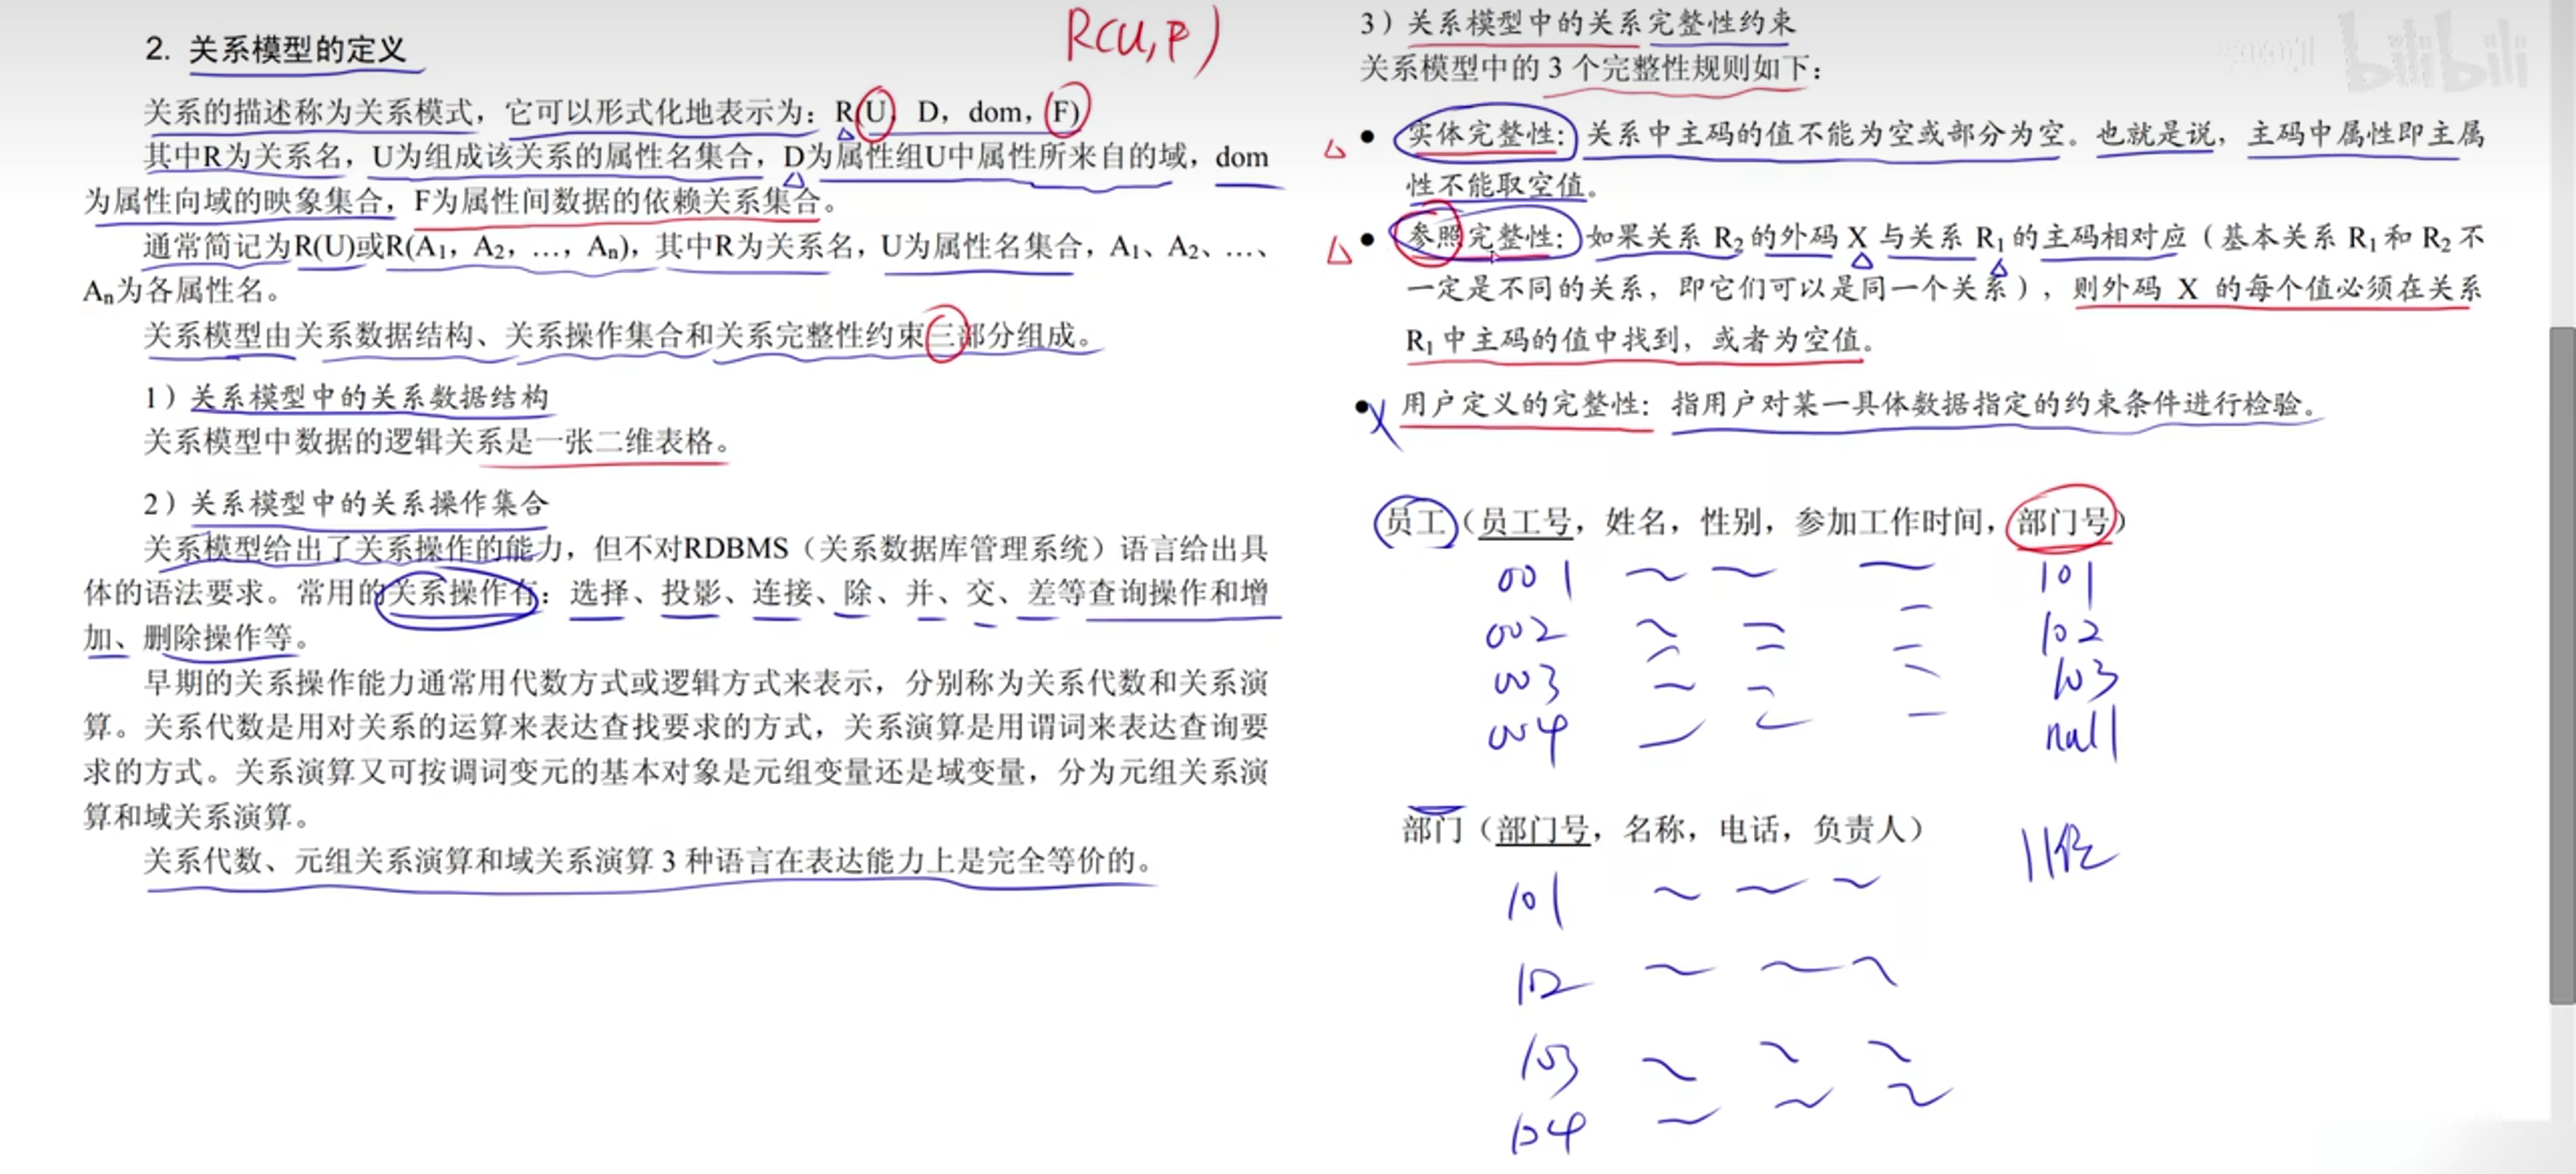 R(U,F)
2. 关系模型的定义
关系的描述称为关系模式，它可以形式化地表示为：R(U, D, dom, F)
其中R为关系名，U为组成该关系的属性名集合，D为属性组U中属性所来自的域，dom
为属性向域的映象集合，F为属性间数据的依赖关系集合。
通常简记为R(U)或R(A1, A2, …, An)，其中R为关系名，U为属性名集合，A1、A2、…、
An为各属性名。
关系模型由关系数据结构、关系操作集合和关系完整性约束三部分组成。
1）关系模型中的关系数据结构
关系模型中数据的逻辑关系是一张二维表格。
2）关系模型中的关系操作集合
关系模型给出了关系操作的能力，但不对RDBMS（关系数据库管理系统）语言给出具
体的语法要求。常用的关系操作有：选择、投影、连接、除、并、交、差等查询操作和增
加、删除操作等。
早期的关系操作能力通常用代数方式或逻辑方式来表示，分别称为关系代数和关系演
算。关系代数是用对关系的运算来表达查找要求的方式，关系演算是用谓词来表达查询要
求的方式。关系演算又可按调词变元的基本对象是元组变量还是域变量，分为元组关系演
算和域关系演算。
关系代数、元组关系演算和域关系演算 3 种语言在表达能力上是完全等价的。
3）关系模型中的关系完整性约束
bilibili
关系模型中的 3 个完整性规则如下：
● 实体完整性：关系中主码的值不能为空或部分为空。也就是说，主码中属性即主属
性不能取空值。
● 参照完整性：如果关系 R2 的外码 X 与关系 R1 的主码相对应（基本关系 R1 和 R2 不
一定是不同的关系，即它们可以是同一个关系），则外码 X 的每个值必须在关系
R1 中主码的值中找到，或者为空值。
● 用户定义的完整性：指用户对某一具体数据指定的约束条件进行检验。
员工（员工号，姓名，性别，参加工作时间，部门号）
001 101
002 102
003 103
004 null
部门（部门号，名称，电话，负责人）
101
102
103
104